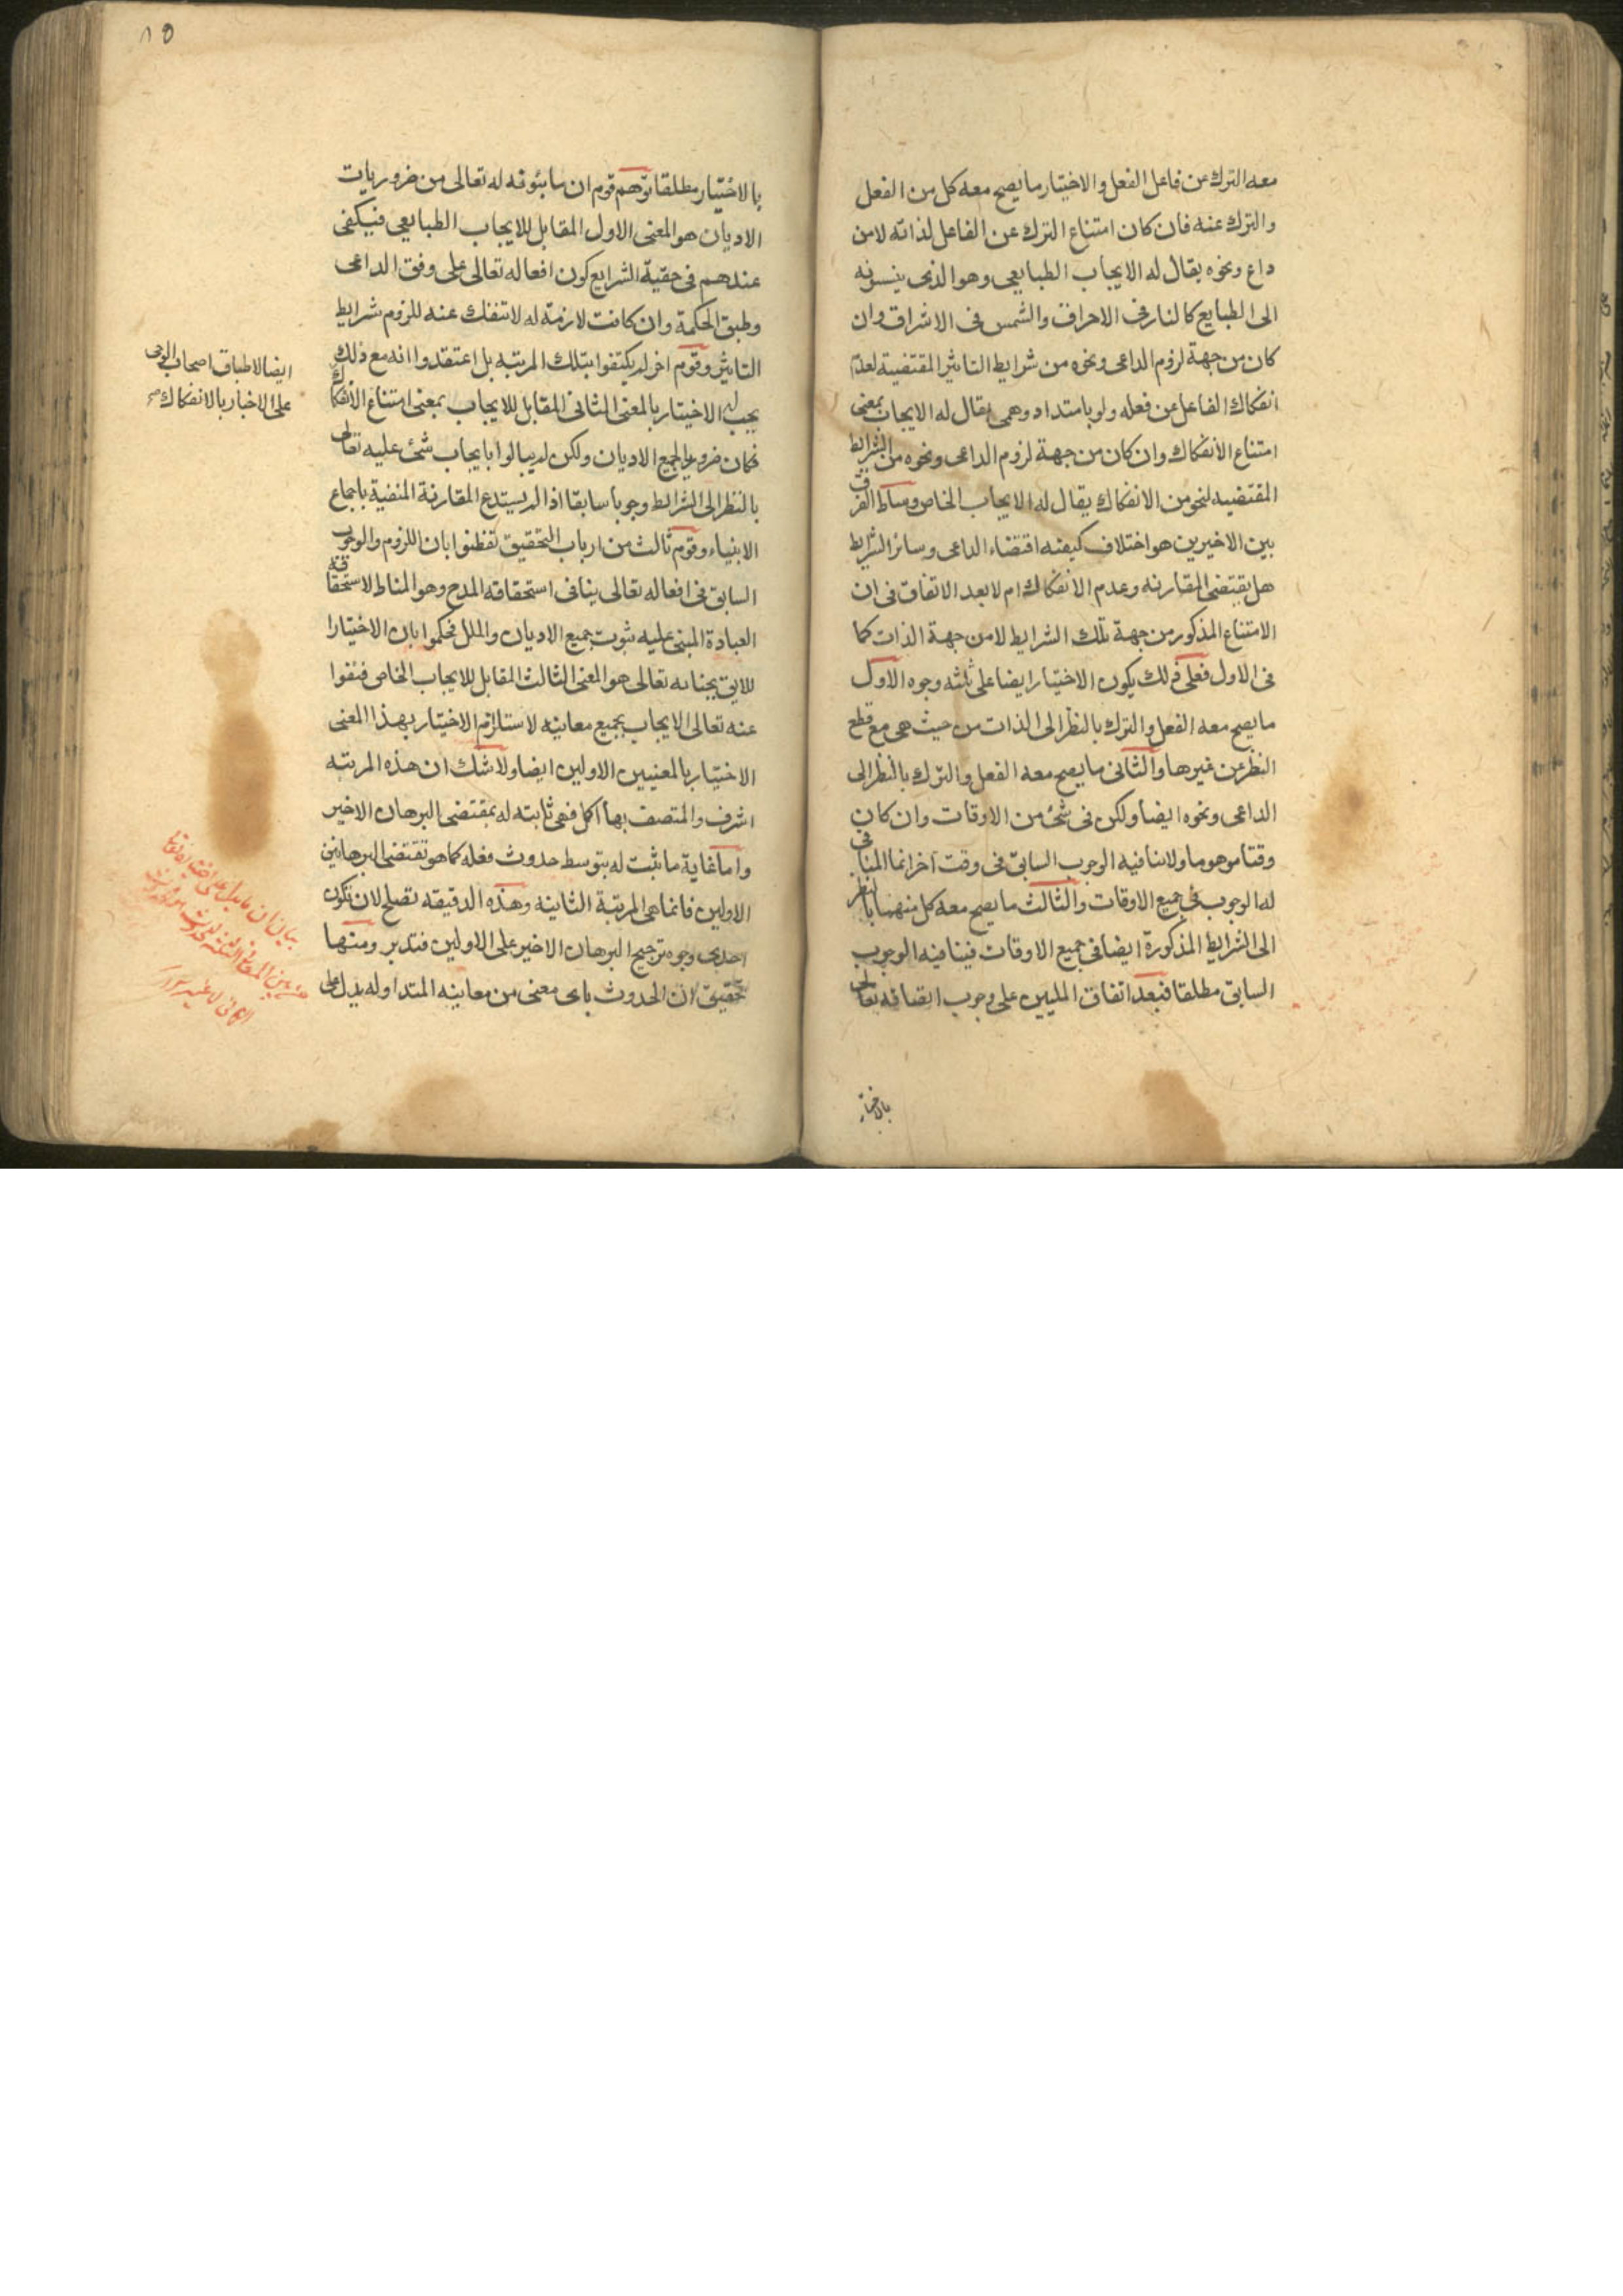 معه الترك عن فاعل الفعل والاختيار ما يصح معه كل من الفعل
والترك عنه فان كان امتناع الترك عن الفاعل لذاته لا من
داع ونحوه يقال له الايجاب الطبايعي وهو الذي ينسبونه
الى الطبايع كالنار في الاحراق والشمس في الاشراق وان
كان من جهة لزوم الداعى ونحوه من شرايط التاثير المقتضية لعدم
انفكاك الفاعل عن فعله ولو بامتداد وهمى يقال له الايجاب بمعنى
امتناع الانفكاك وان كان من جهة لزوم الداعى ونحوه من الشرايط
المقتضيه لنحو من الانفكاك يقال له الايجاب الخاص ومناط الفرق
بين الاخيرين هو اختلاف كيفيه اقتضاء الداعى وسائر الشرايط
هل يقتضى المقارنه وعدم الانفكاك ام لا بعد الاتفاق في ان
الامتناع المذكور من جهة تلك الشرايط لا من جهة الذات كما
في الاول فعلى ذلك يكون الاختيار ايضا على ثلثه وجوه الاول
ما يصح معه الفعل والترك بالنظر الى الذات من حيث هي مع قطع
النظر عن غيرها والثانى ما يصح معه الفعل والترك بالنظر الى
الداعى ونحوه ايضا ولكن في شئ من الاوقات وان كان
وقتا موهوما ولا ينافيه الوجوب السابق في وقت آخر انما المنافى
له الوجوب في جميع الاوقات والثالث ما يصح معه كل منهما بالنظر
الى الشرايط المذكورة ايضا في جميع الاوقات فينافيه الوجوب
السابق مطلقا فبعد اتفاق المليين على وجوب اتصافه تعالى
بالاختيار
١٥
بالاختيار مطلقا توهم قوم ان ما يثبونه له تعالى من ضروريات
الاديان هو المعنى الاول المقابل للايجاب الطبايعي فيكفى
عندهم في حقية الشرايع كون افعاله تعالى على وفق الداعى
وطبق الحكمة وان كانت لازمة له لا تنفك عنه للزوم شرايط
التاثير وقوم اخر لم يكتفوا بتلك المرتبه بل اعتقدوا انه مع ذلك
يجب له الاختيار بالمعنى الثانى المقابل للايجاب بمعنى امتناع الانفكاك
ايضا لاطباق اصحاب الوحى
على الاخبار بالانفكاك صح
فكان ضروريا لجميع الاديان ولكن لم يبالوا بايجاب شئ عليه تعالى
بالنظر الى الشرايط وجوبا سابقا اذا لم يستدع المقارنة المنفية باجماع
الانبياء وقوم ثالث من ارباب التحقيق تفطنوا بان اللزوم والوجوب
السابق في افعاله تعالى ينافى استحقاقه المدح وهو المناط لاستحقاقه
العبادة المبنى عليه ثبوت جميع الاديان والملل فحكموا بان الاختيار
اللايق بجنابه تعالى هو المعنى الثالث المقابل للايجاب الخاص فنفوا
عنه تعالى الايجاب بجميع معانيه لاستلزام الاختيار بهذا المعنى
الاختيار بالمعنيين الاولين ايضا ولا شك ان هذه المرتبه
اشرف والمتصف بها اكمل فهى ثابته له بمقتضى البرهان الاخير
واما غاية ما ثبت له بتوسط حدوث فعله كما هو تقتضى البرهانين
الاولين فانما هى المرتبة الثانيه وهذه الدقيقه تصلح لان تكون
احدى وجوه ترجيح البرهان الاخير على الاولين فتدبر ومنها
تحقيق ان الحدوث باى معنى من معانيه المتداوله يدل على